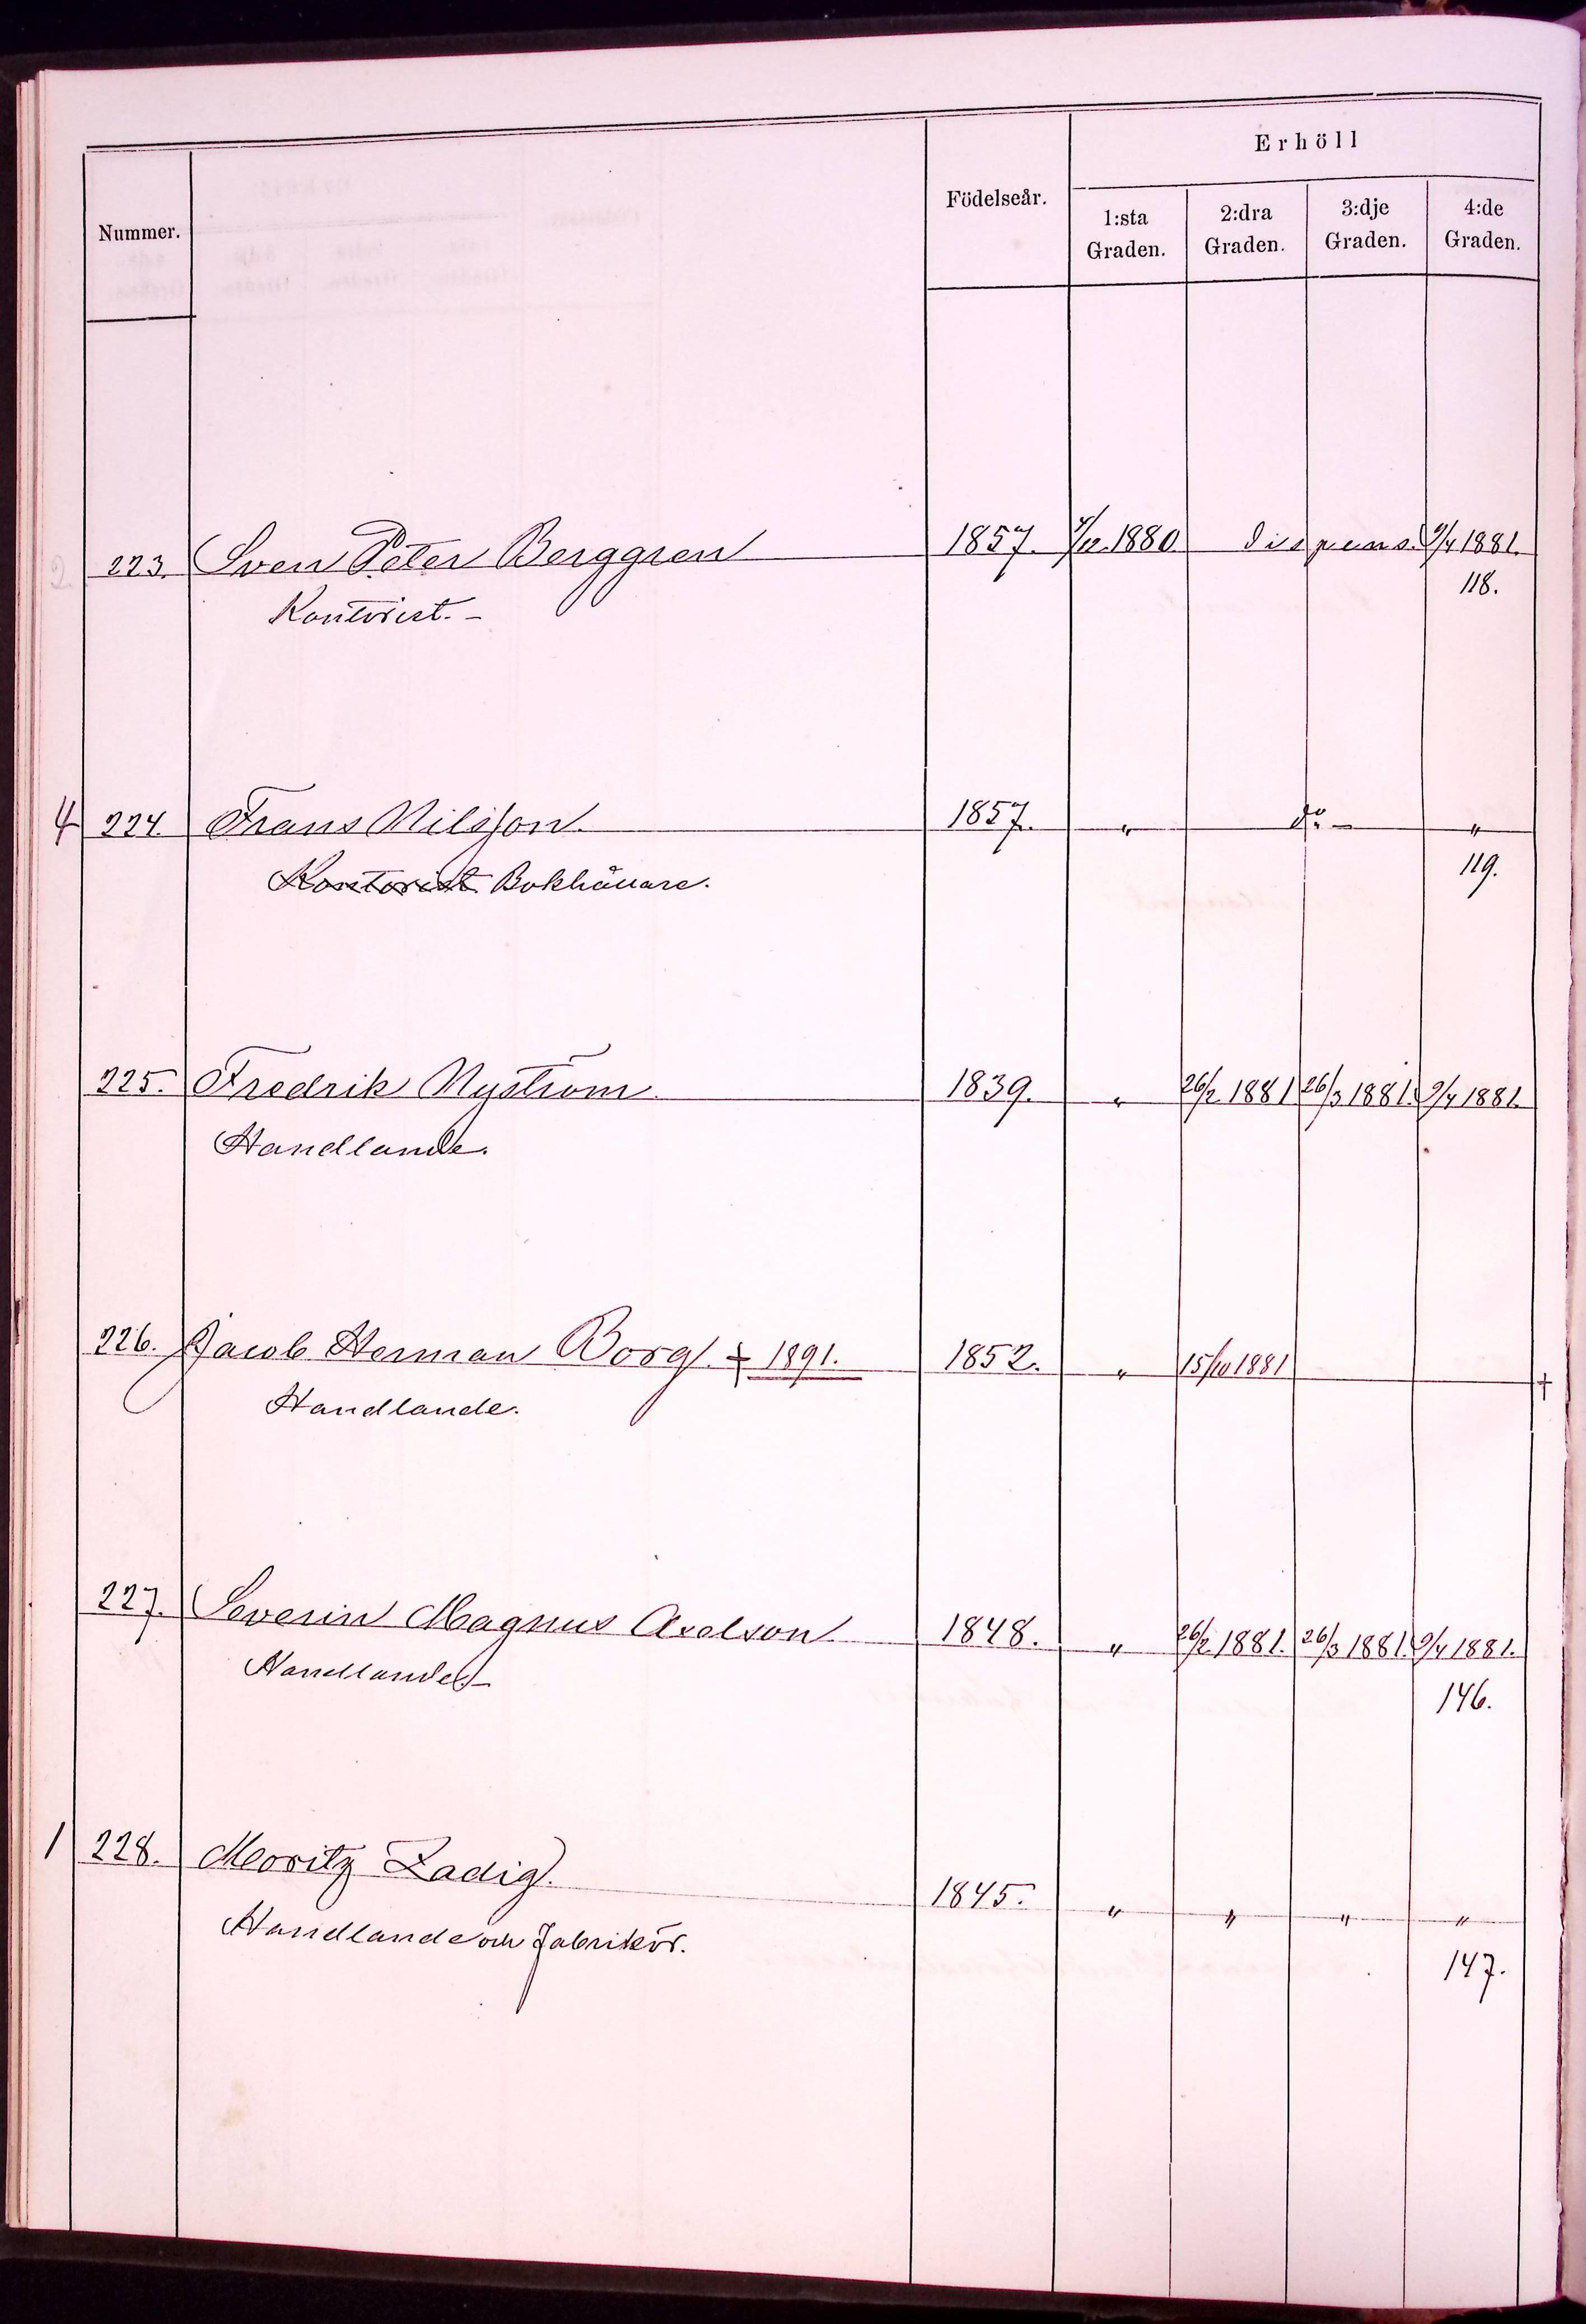 Erhöll
Nummer. Födelseår. 1:sta Graden. 2:dra Graden. 3:dje Graden. 4:de Graden.
2. 223. Sven Peter Berggren 1857. 4/12 1880 dispens. 9/4 1881.
Kontorist. - 118.
4 224. Frans Nilsson. 1857. " do - "
Kontorist. Bokhållare. 119.
225. Fredrik Nyström. 1839. " 26/2 1881 26/3 1881. 9/4 1881.
Handlande.
226. Jacob Herman Borg. † 1891. 1852. " 15/10 1881 †
Handlande.
227. Severin Magnus Axelson. 1848. " 26/2 1881. 26/3 1881. 9/4 1881.
Handlande. - 146.
1 228. Moritz Zadig. 1845. " " " "
Handlande och Fabrikör. 147.